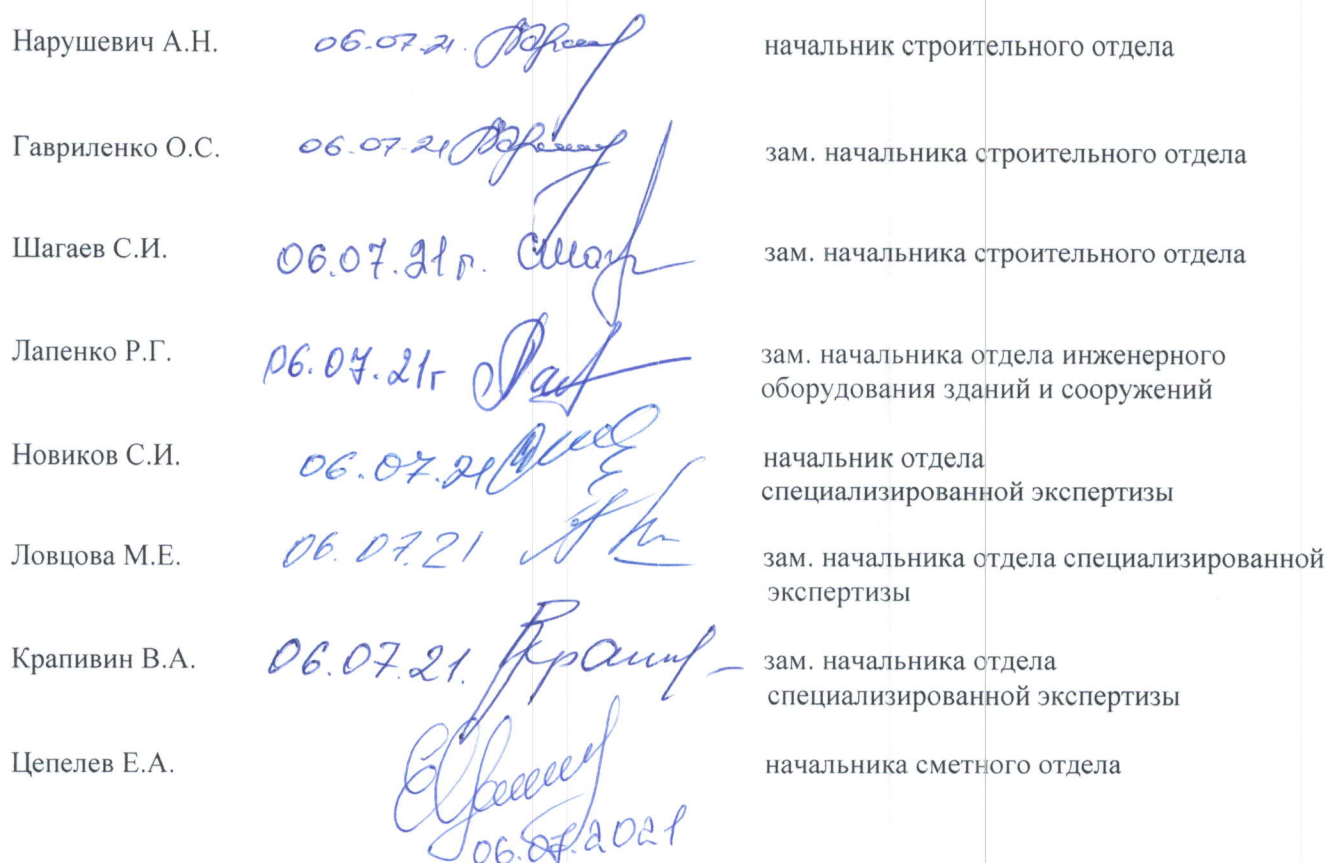 Нарушевич А.Н. 06.07.21. начальник строительного отдела
Гавриленко О.С. 06.07.21 зам. начальника строительного отдела
Шагаев С.И. 06.07.21г. зам. начальника строительного отдела
Лапенко Р.Г. 06.07.21г зам. начальника отдела инженерного
оборудования зданий и сооружений
Новиков С.И. 06.07.21 начальник отдела
специализированной экспертизы
Ловцова М.Е. 06.07.21 зам. начальника отдела специализированной
экспертизы
Крапивин В.А. 06.07.21. зам. начальника отдела
специализированной экспертизы
Цепелев Е.А. начальника сметного отдела
06.07.2021